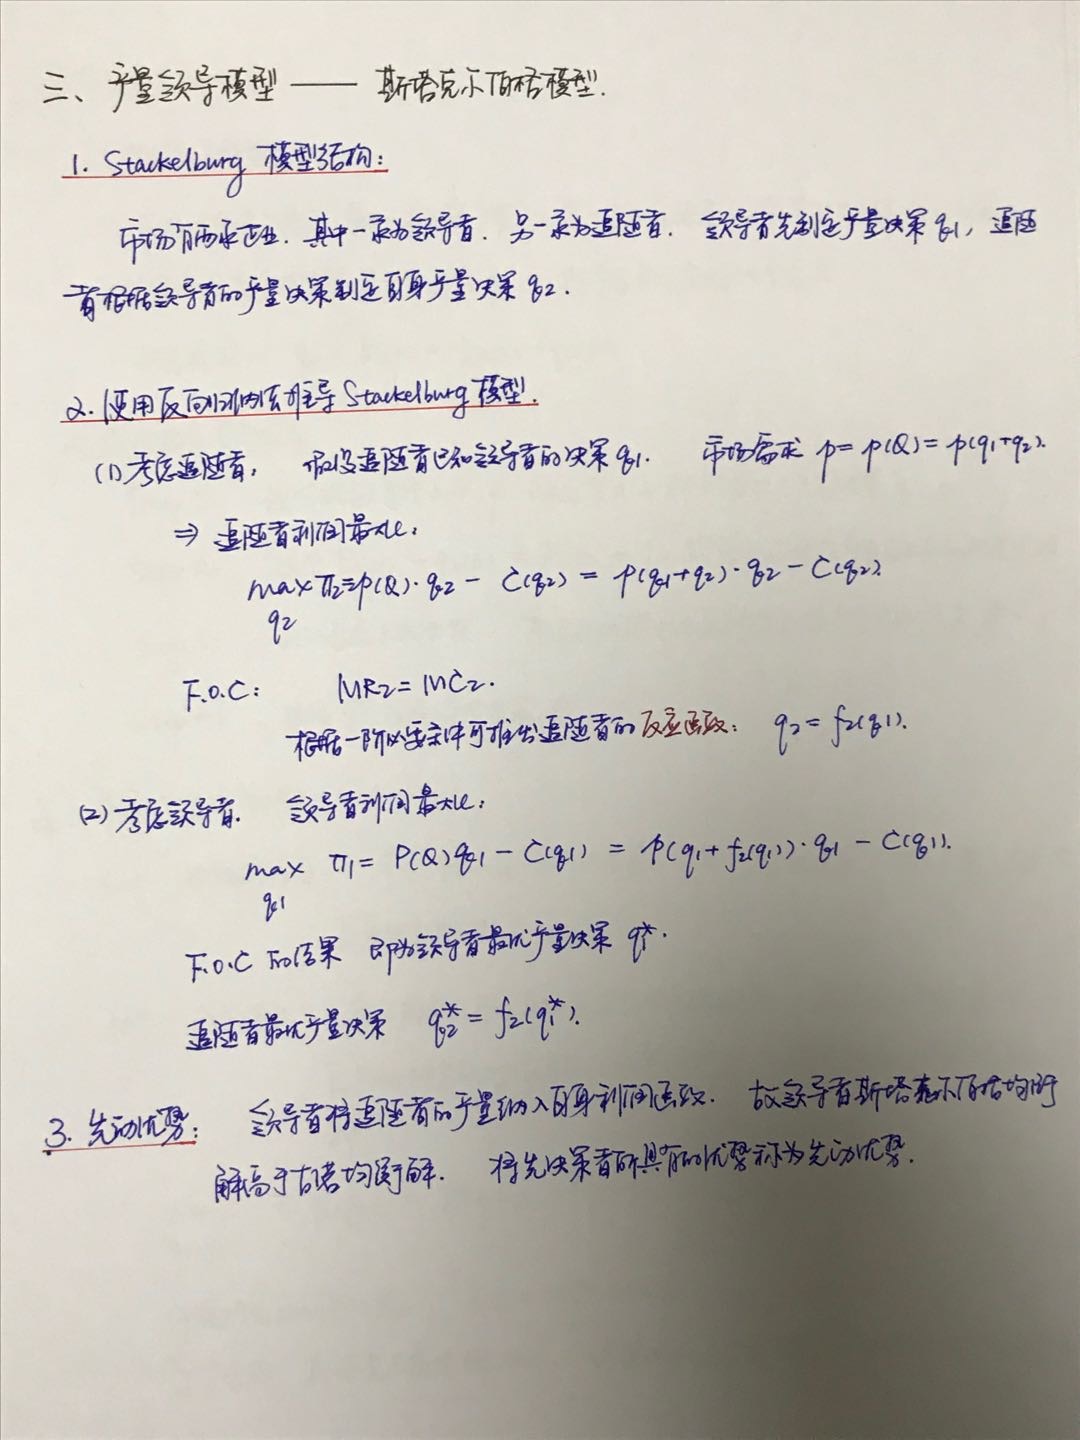 三、产量领导模型 —— 斯塔克尔伯格模型.
1. Stackelburg 模型结构:
市场有两家企业. 其中一家为领导者. 另一家为追随者. 领导者先制定产量决策 q1, 追随
者根据领导者的产量决策制定自身产量决策 q2.
2. 使用反向归纳法推导 Stackelburg 模型.
(1) 考虑追随者, 假设追随者已知领导者的决策 q1. 市场需求 p = p(Q) = p(q1+q2).
⇒ 追随者利润最大化:
max π2 = p(Q)·q2 - C(q2) = p(q1+q2)·q2 - C(q2).
q2
F.O.C: MR2 = MC2.
根据一阶必要条件可推出追随者的反应函数: q2 = f2(q1).
(2) 考虑领导者. 领导者利润最大化:
max π1 = P(Q)q1 - C(q1) = p(q1 + f2(q1))·q1 - C(q1).
q1
F.O.C 的结果 即为领导者最优产量决策 q1*.
追随者最优产量决策 q2* = f2(q1*).
3. 先动优势: 领导者将追随者的产量纳入自身利润函数. 故领导者斯塔克尔伯格均衡
解高于古诺均衡解. 将先决策者所具有的优势称为先动优势.